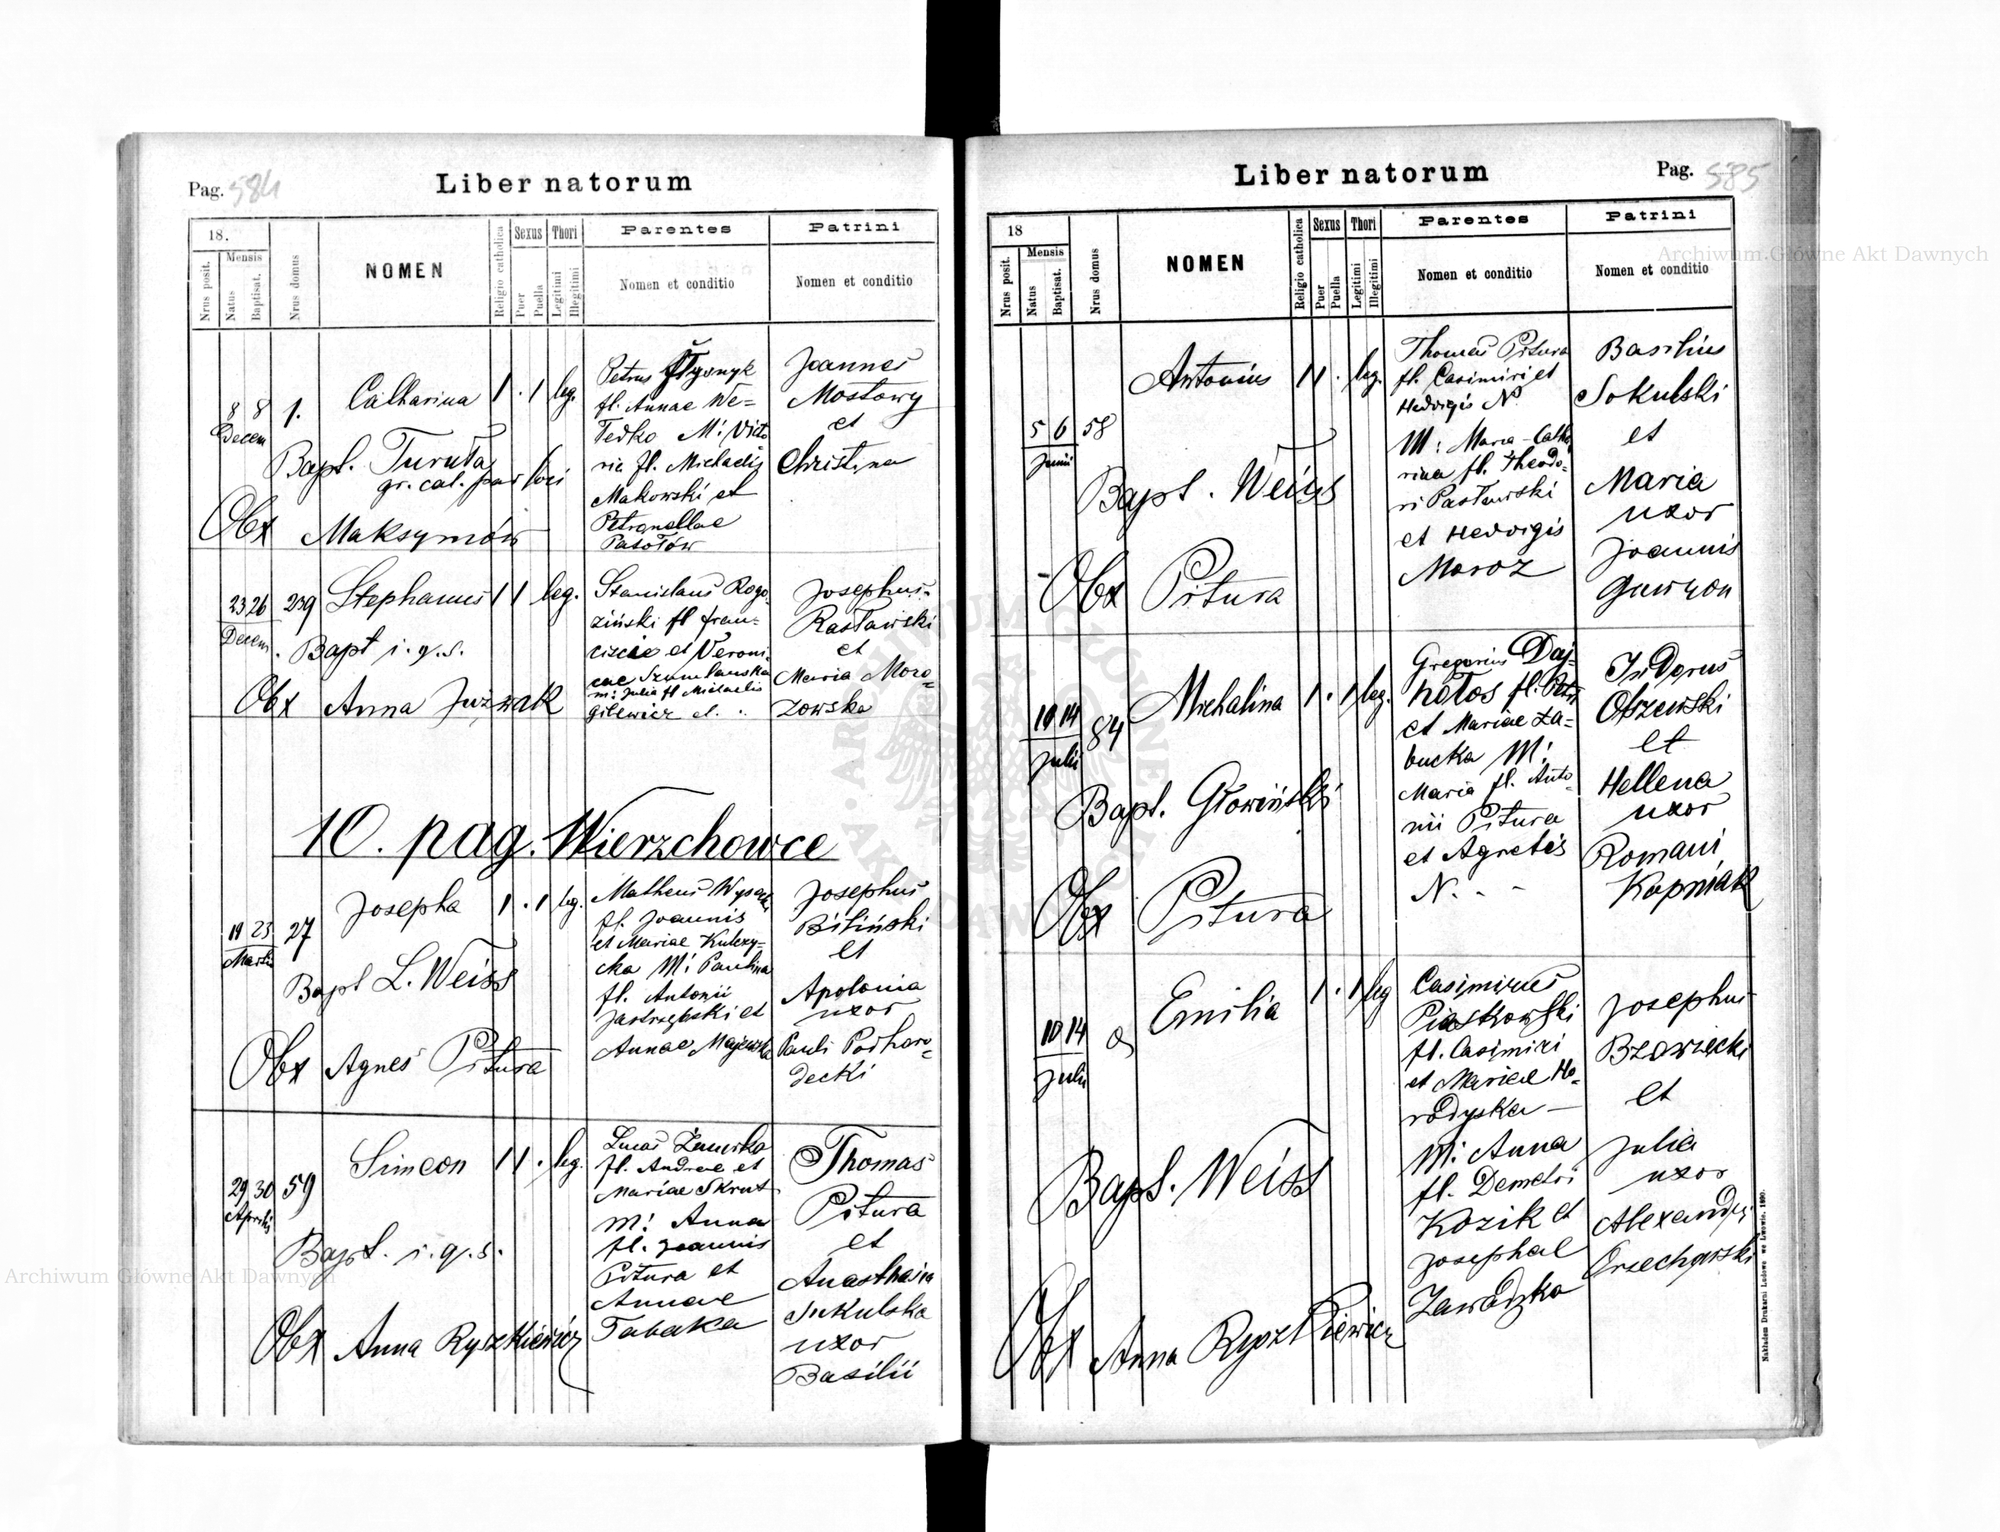 Pag. 584
Liber natorum
18.
Nrus posit.
Mensis
Natus
Baptisat.
Nrus domus
NOMEN
Religio catholica
Sexus
Puer
Puella
Thori
Legitimi
Illegitimi
Parentes
Nomen et conditio
Patrini
Nomen et conditio
8 8
Decem
1.
Catharina
1 . 1 leg.
Bapt. Turuła
gr. cat. par
Obx Maksymów
Petrus
fl. Annae We=
Tedko M: Victo
ria fl. Michaelis
Makowski et
Petronellae
Patołów
Joannes
Mostowy
et
Christina
23 26
Decem.
239
Stephanus
1 1 leg.
Bapt i. q. s.
Obx Anna Juzwak
Stanislaus Rogo
ziński fl fran=
cisci et Veroni
cae Szumlańska
m: Julia fl Michaelis
Gilewicz et . .
Josephus
Rasławski
et
Maria Moro=
zowska
10. pag. Wierzchowce
19 23
Martii
27
Josepha
1 . 1 leg.
Bapt L. Weiss
Obx Agnes Pitura
Matheus
fl. Joannis
et Mariae Kulczy=
cka M: Paulina
fl. Antonii
Jastrzębski et
Annae Majewska
Josephus
Biliński
et
Apolonia
uxor
Pauli Podhoro=
decki
29 30
Aprilis
59
Simeon
1 1 . leg.
Bapt. i. q. s.
Obx Anna Ryszkiewicz
Lucas
fl. Andreae et
Mariae Skrut
M: Anna
fl. Joannis
Pitura et
Annae
Tabaka
Thomas
Pitura
et
Anasthasia
Sukulska
uxor
Basilii
Liber natorum
Pag. 585
18
Nrus posit.
Mensis
Natus
Baptisat.
Nrus domus
NOMEN
Religio catholica
Sexus
Puer
Puella
Thori
Legitimi
Illegitimi
Parentes
Nomen et conditio
Patrini
Nomen et conditio
5 6
Junii
58
Antonius
1 1 . leg.
Bapt. Weiss
Obx Pitura
Thomas Pitura
fl. Casimiri et
Hedvigis N.
M: Maria-Catha
rina fl. Theodo=
ri Pasławski
et Hedvigis
Moroz
Basilius
Sokulski
et
Maria
uxor
Joannis
Gawron
10 14
Julii
84
Michalina
1 . 1 leg.
Bapt. Głowiński
Obx Pitura
Gregorius Daj=
netos fl. Petri
et Mariae Za=
bucka M:
Maria fl. Anto
nii Pitura
et Agnetis
N. - -
Isidorus
Olszewski
et
Hellena
uxor
Romani
Kopniak
10 14
Julii
Emilia
1 . 1 leg
Bapt. Weiss
Obx Anna Ryszkiewicz
Casimirus
Piaskowski
fl. Casimiri
et Mariae Ho=
rodyska -
M: Anna
fl. Demetri
Kozik et
Josephae
Zawadzka
Josephus
Bzowiecki
et
Julia
uxor
Alexandri
Orzechowski
Nakładem Drukarni Ludowej we Lwowie. 1890.
Archiwum Główne Akt Dawnych
Archiwum Główne Akt Dawnych
ARCHIWUM GŁÓWNE AKT DAWNYCH